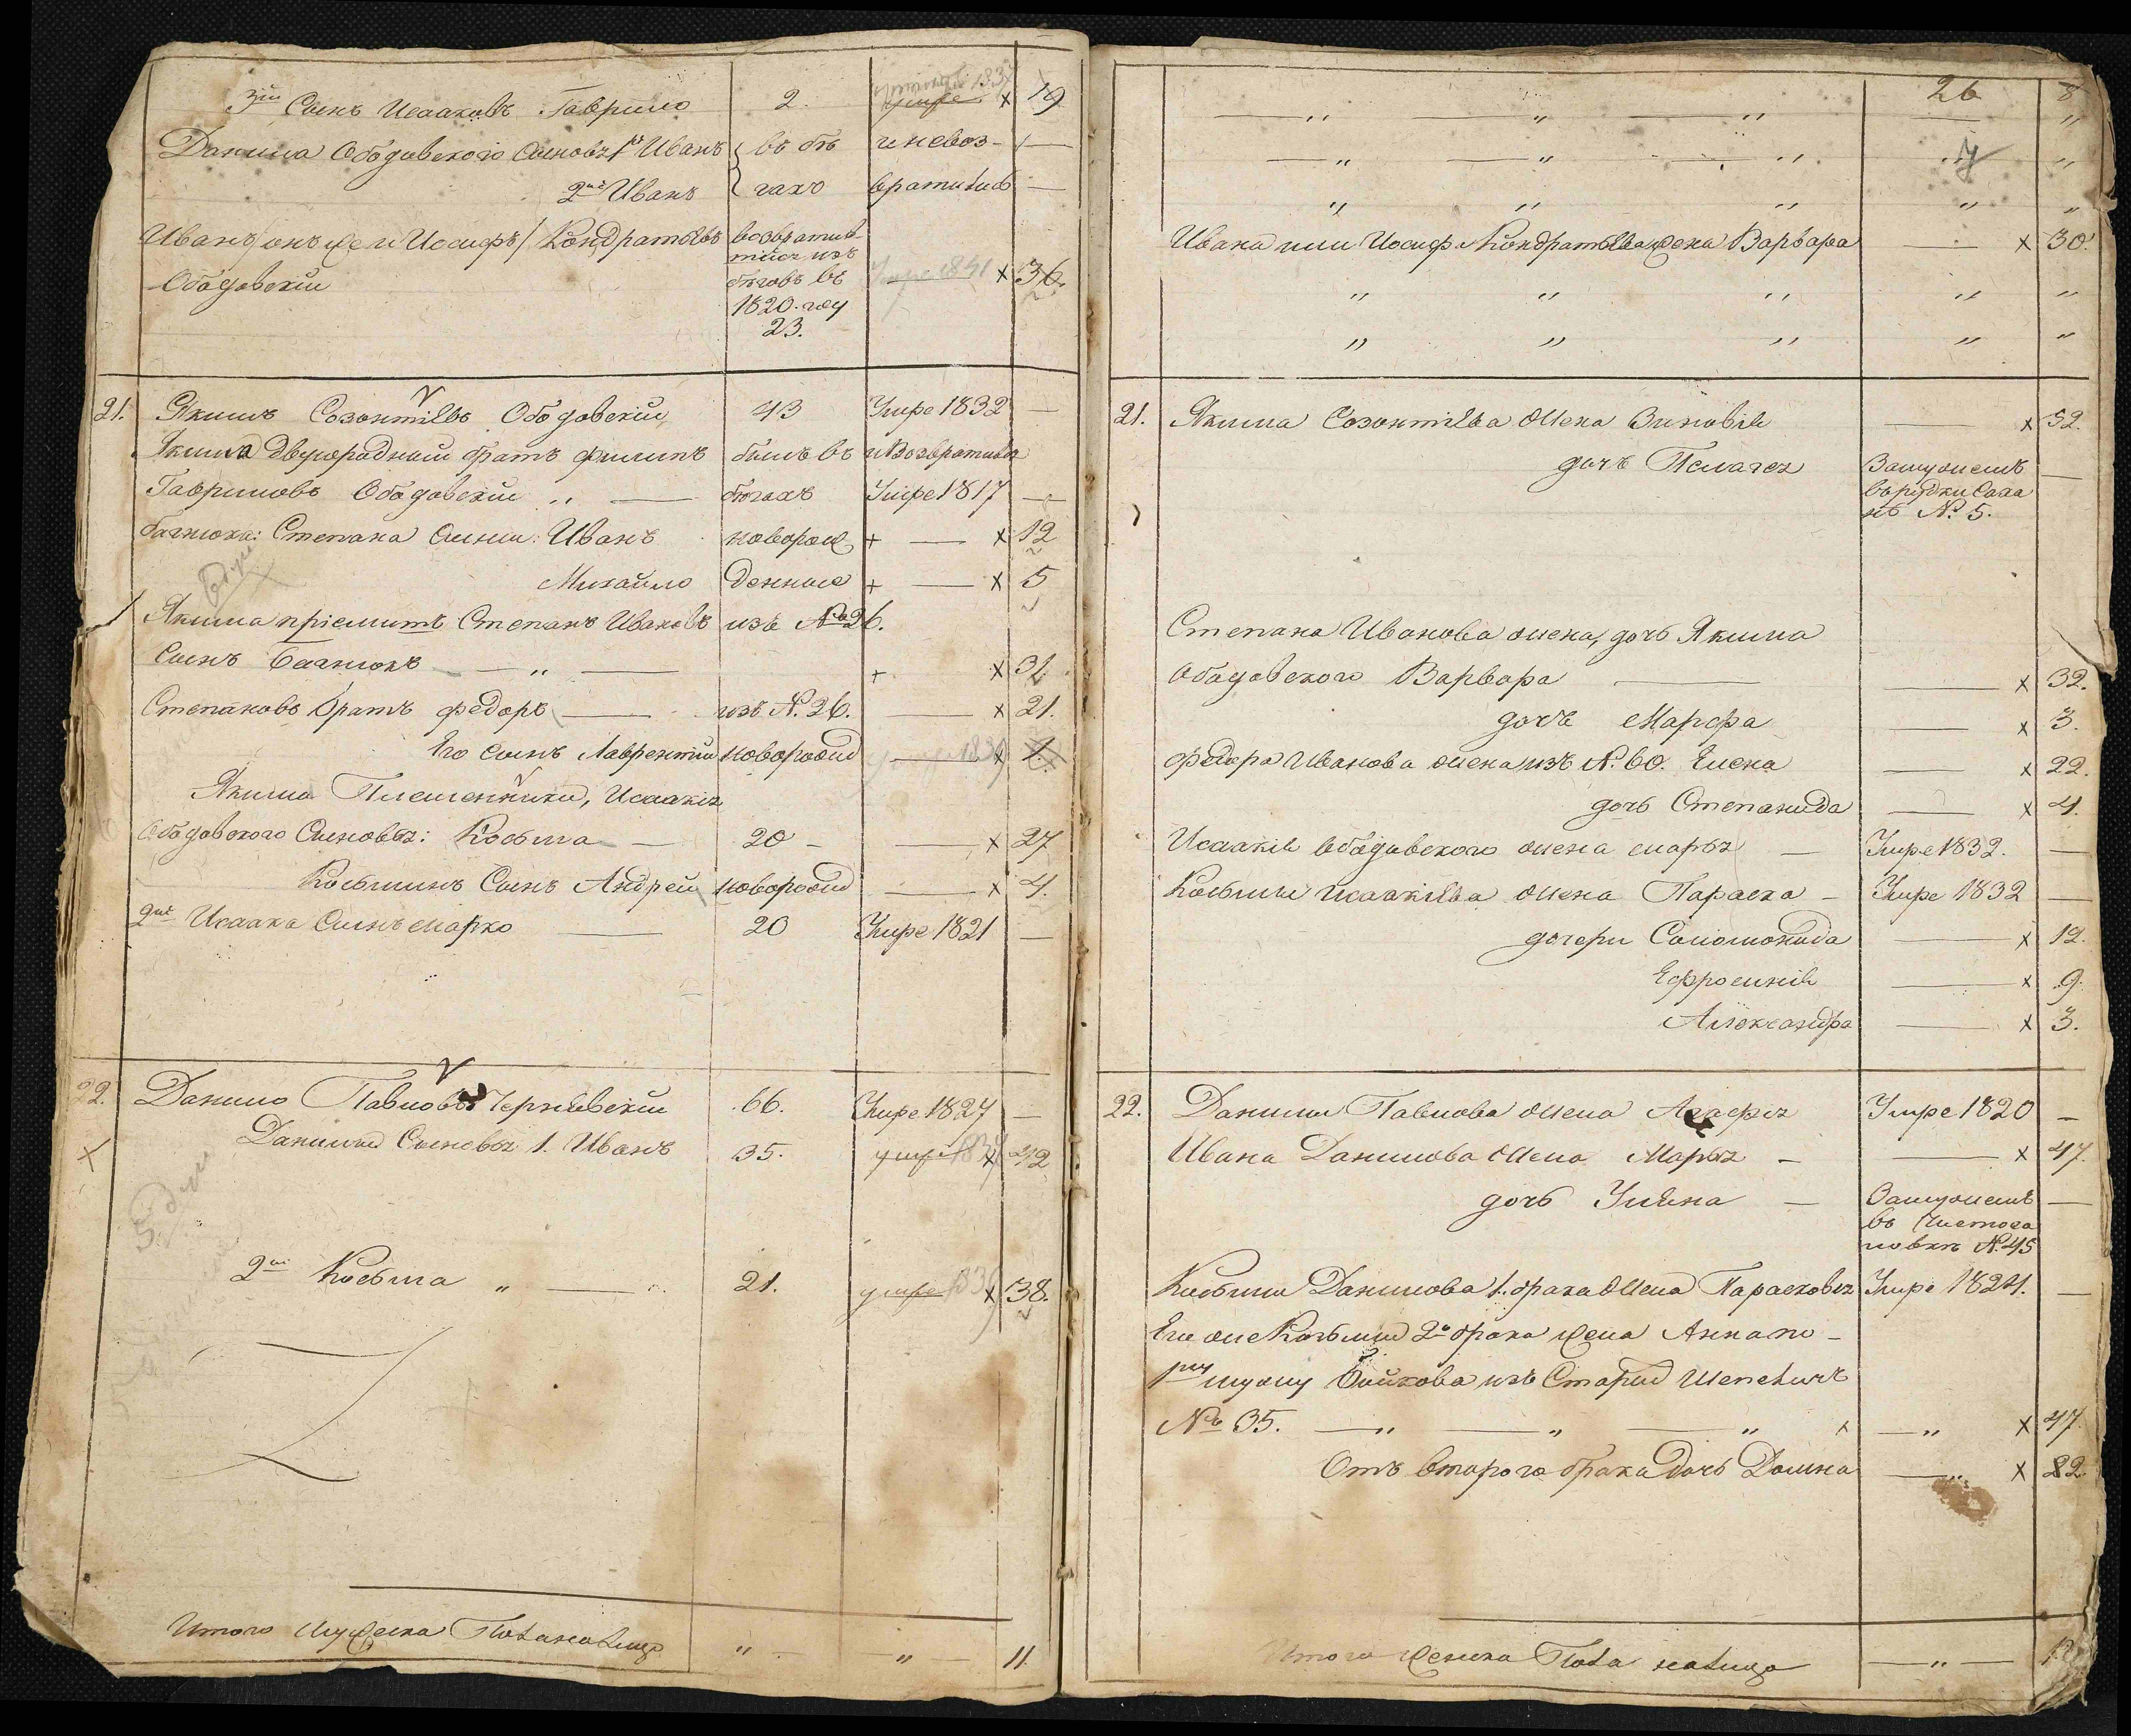 3й Сынъ Исааковъ Гаврило 2. умре х 19
Данила Ободовскаго Сыновья 1й Иванъ въ бѣ и невоз-
2й Иванъ гахъ вратились —
Иванъ /онъ же и Иосифъ/ Кондратьевъ возвратив
шійся изъ
Ободовскій бѣговъ въ х 36.
1820. году
23.
21. Якимъ Созонтіевъ Ободовскій 43 Умре 1832 —
Якима двоюродный братъ Филипъ былъ въ и Возвратився
Гавриловъ Ободовскій „ — бѣгахъ Умре 1817 —
багнюка: Степана Сыны: Иванъ новорож + — х 12
Михайло денные + — х 5
Якима пріемышъ Степанъ Ивановъ изъ №26.
Сынъ Багнюкъ — „ — + х 31
Степановъ братъ Федоръ — изъ №.26. — х 21.
Его сынъ Лаврентій новорожд — 1839 х 1.
Якима Племенники, Исаакія
Ободовскаго Сыновья: Косьма — 20 — — х 27
Косьминъ Сынъ Андрей новорожд — х 4.
2й Исаака Сынъ Марко — 20 Умре 1821 —
22. Данило Павловъ Чернѣвскій 66. Умре 1827 —
х Данилы Сыновья 1. Иванъ 35. умре х 42
2й Косьма „ — 21. умре х 38.
Итого Мужеска Пола налицо „ — „ — 11.
26 8
7
Ивана или Иосифа Кондратьева жена Варвара — х 30.
21. Якима Созонтіева жена Зиновія — х 52.
дочь Пелагея Замужемъ —
въ рудки Сала
хъ №. 5.
Степана Иванова жена, дочь Якима
Ободовскаго Варвара — — х 32.
дочь Марфа — х 3.
Федора Иванова жена изъ №.60. Елена — х 22.
дочь Степанида — х 4.
Исаакія Ободовскаго жена Марья — Умре 1832. —
Косьмы Исаакіева жена Параска — Умре 1832 —
дочери Соломонида — х 12.
Ефросинія — х 9.
Александра — х 3.
22. Данилы Павлова жена Агафія Умре 1820 —
Ивана Данилова жена Марья — — х 47.
дочь Уліяна — Замужемъ —
въ Чистога
ловкѣ №.45
Косьмы Данилова 1. брака жена Парасковія Умре 1824. —
Его же Косьмы 2о брака жена Анна по —
1му мужу Бойкова изъ Старыхъ Шепеличъ
№ 35. — „ — „ — „ — „ х 47.
Отъ втораго брака дочь Домна — „ х 22.
Итого женска Пола налицо — „ —